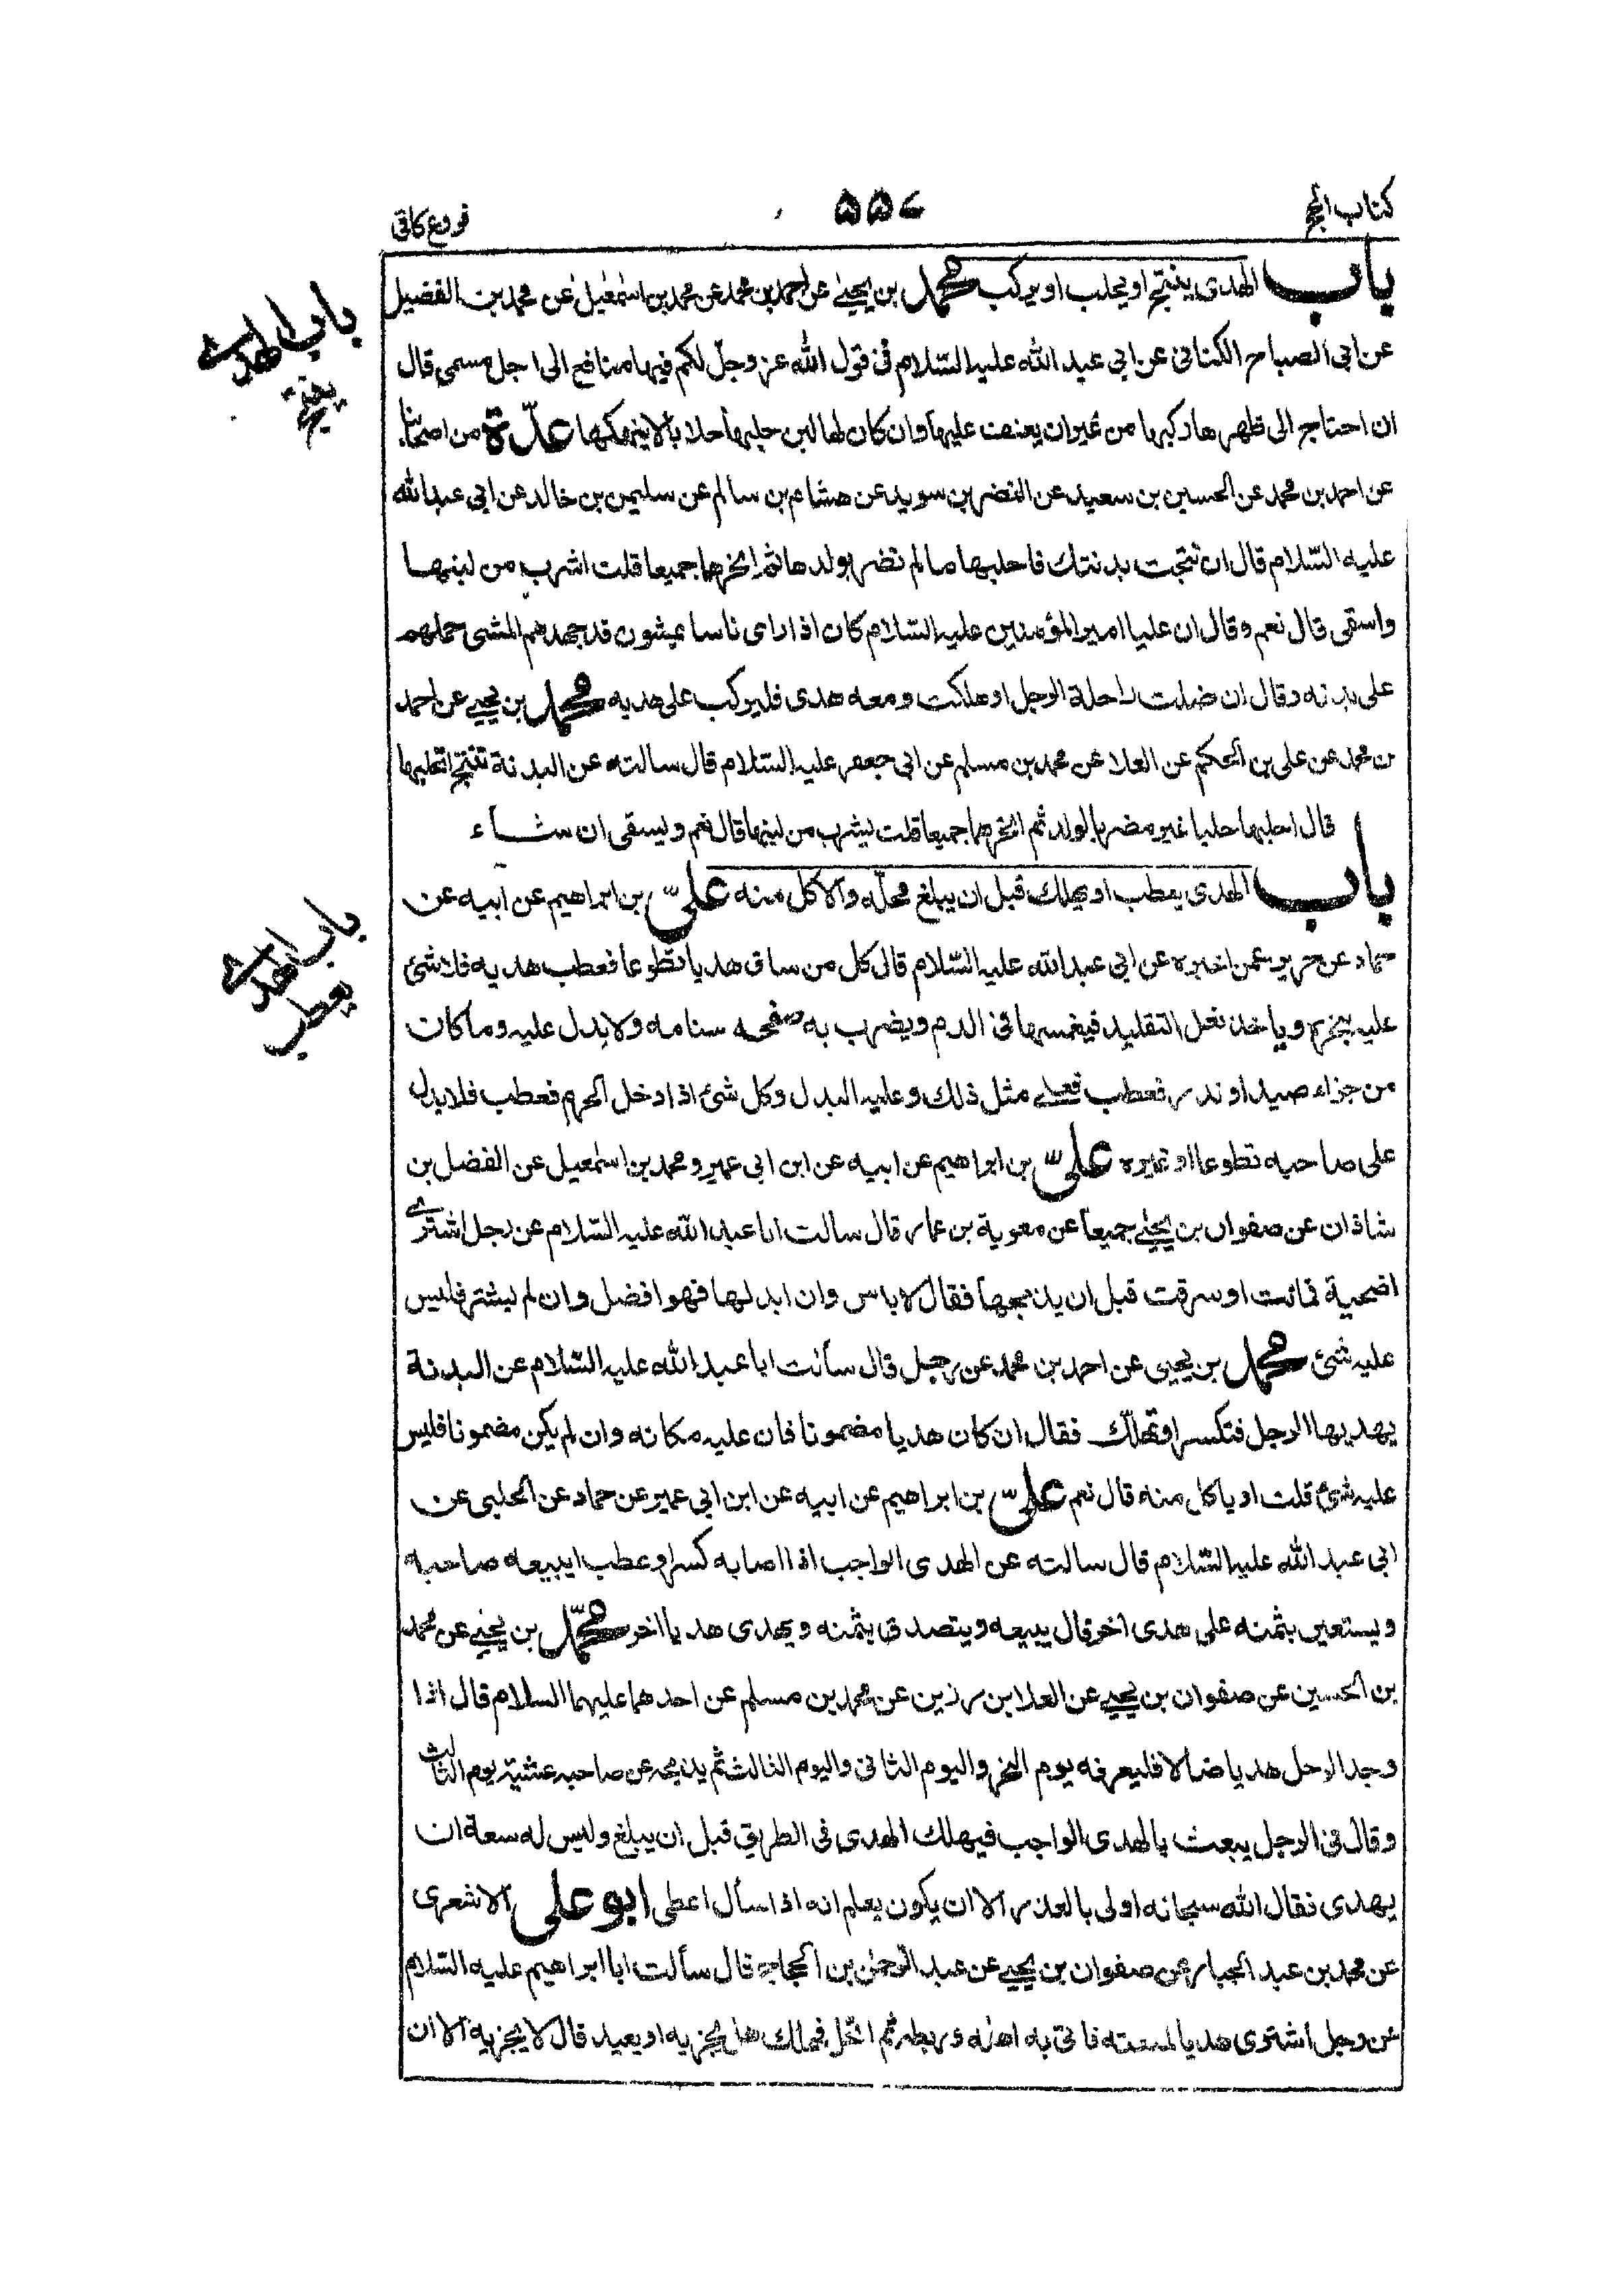 كتاب الحج
۵۵۷
فروع كافى
باب الهدى ينتج او يحلب او يركب محمد بن يحيى عن احمد بن محمد عن محمد بن اسمعيل عن محمد بن الفضيل
عن ابى الصباح الكنانى عن ابى عبد الله عليه السّلام فى قول الله عز وجلّ لكم فيها منافع الى اجل مسمى قال
ان احتاج الى ظهرها ركبها من غير ان يعنف عليها وان كان لها لبن حلبها حلابا لا ينهكها عدّة من اصحابنا
عن احمد بن محمد عن الحسين بن سعيد عن النضر بن سويد عن هشام بن سالم عن سليمن بن خالد عن ابى عبد الله
عليه السّلام قال ان نتجت بدنتك فاحلبها ما لم تضر بولدها ثم انحرهما جميعا قلت اشرب من لبنها
واسقى قال نعم وقال ان عليا امير المؤمنين عليه السّلام كان اذا راى ناسا يمشون قد جهدهم المشى حملهم
على بدنه وقال ان ضلت راحلة الرجل او هلكت ومعه هدى فليركب على هديه محمد بن يحيى عن احمد
بن محمد عن على بن الحكم عن العلا عن محمد بن مسلم عن ابى جعفر عليه السّلام قال سالته عن البدنة تنتج انحلبها
قال احلبها حلبا غير مضر بالولد ثم انحرهما جميعا قلت يشرب من لبنها قال نعم ويسقى ان شاء
باب الهدى يعطب او يهلك قبل ان يبلغ محلّه والاكل منه علىّ بن ابراهيم عن ابيه عن
حماد عن حريز عمن اخبره عن ابى عبد الله عليه السّلام قال كل من ساق هديا تطوعا فعطب هديه فلا شئ
عليه ينحره وياخذ نعل التقليد فيغمسها فى الدم ويضرب به صفحه سنامه ولا بدل عليه وما كان
من جزاء صيد او نذر فعطب فعل مثل ذلك وعليه البدل وكل شئ اذا دخل الحرم فعطب فلا بدل
على صاحبه تطوعا او غيره علىّ بن ابراهيم عن ابيه عن ابن ابى عمير ومحمد بن اسمعيل عن الفضل بن
شاذان عن صفوان بن يحيى جميعا عن معوية بن عمار قال سالت ابا عبد الله عليه السّلام عن رجل اشترى
اضحية فماتت او سرقت قبل ان يذبحها فقال لا باس وان ابدلها فهو افضل وان لم يشتر فليس
عليه شئ محمد بن يحيى عن احمد بن محمد عن رجل قال سألت ابا عبد الله عليه السّلام عن البدنة
يهديها الرجل فتكسر او تهلك فقال ان كان هديا مضمونا فان عليه مكانه وان لم يكن مضمونا فليس
عليه شئ قلت او ياكل منه قال نعم علىّ بن ابراهيم عن ابيه عن ابن ابى عمير عن حماد عن الحلبى عن
ابى عبد الله عليه السّلام قال سالته عن الهدى الواجب اذا اصابه كسر او عطب ايبيعه صاحبه
ويستعين بثمنه على هدى اخر قال يبيعه ويتصدق بثمنه ويهدى هديا اخر محمّد بن يحيى عن محمد
بن الحسين عن صفوان بن يحيى عن العلا بن رزين عن محمد بن مسلم عن احدهما عليهما السلام قال اذا
وجد الرجل هديا ضالا فليعرفه يوم النحر واليوم الثانى واليوم الثالث ثم يذبحه عن صاحبه عشية يوم الثالث
وقال فى الرجل يبعث بالهدى الواجب فيهلك الهدى فى الطريق قبل ان يبلغ وليس له سعة ان
يهدى فقال الله سبحانه اولى بالعذر الا ان يكون يعلم انه اذا سأل اعطى ابو على الاشعرى
عن محمد بن عبد الجبار عن صفوان بن يحيى عن عبد الرّحمن بن الحجاج قال سألت ابا ابراهيم عليه السّلام
عن رجل اشترى هديا لمتعته فاتى به اهله وربطه ثم انحل فهلك هل يجزيه او يعيد قال لا يجزيه الا ان
باب الهدى
ينتج
باب الهدى
يعطب